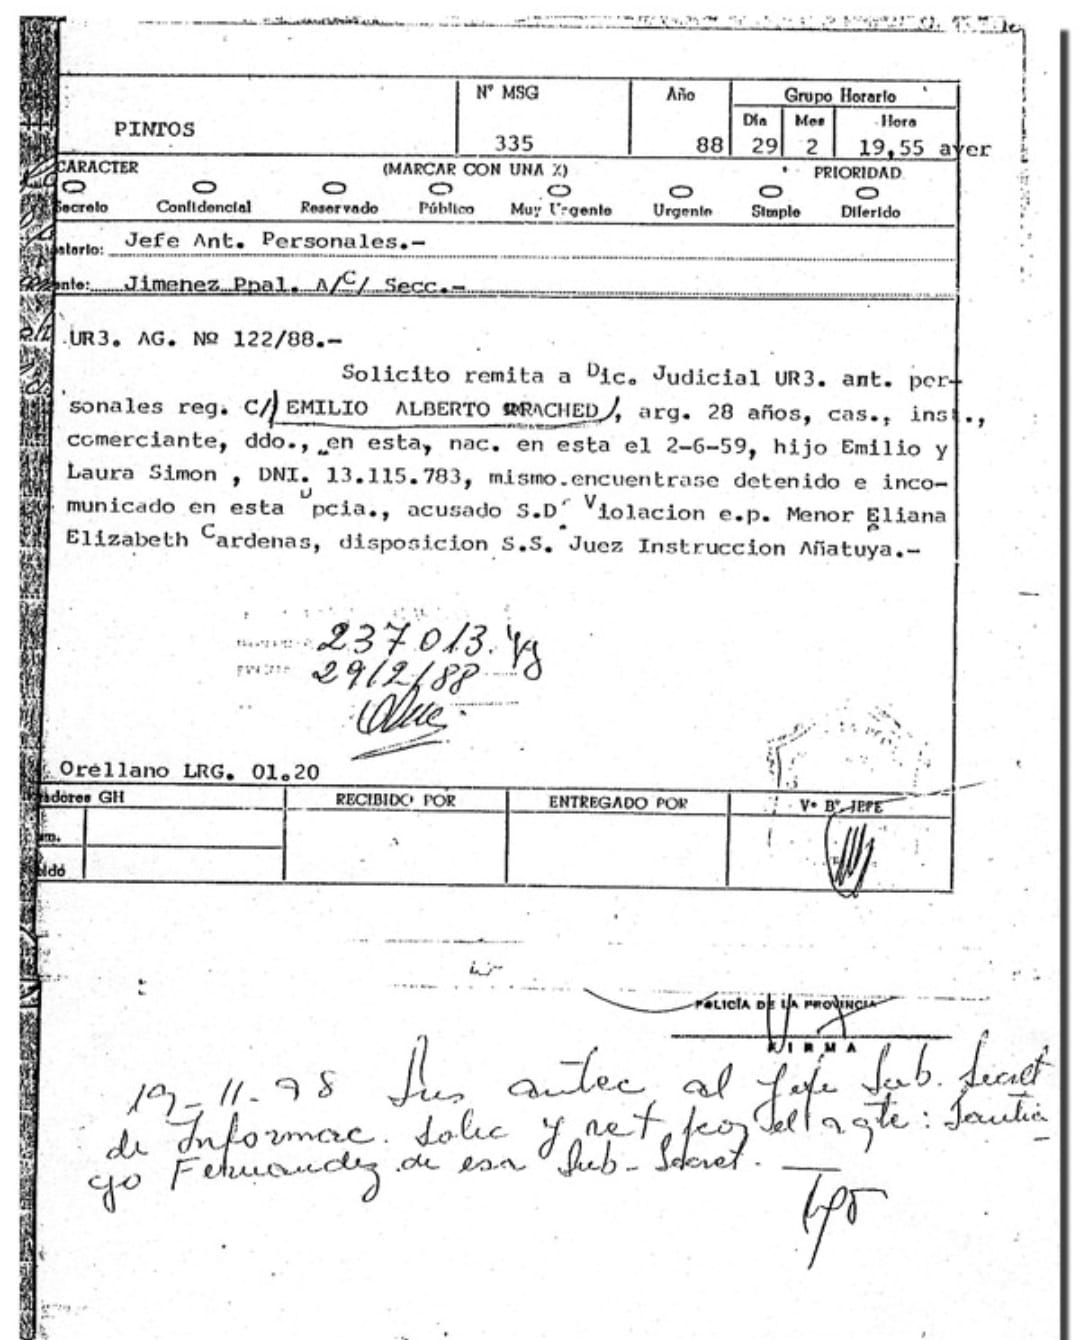 N° MSG Año Grupo Horario
Día Mes Hora
PINTOS 335 88 29 2 19,55 ayer
CARACTER (MARCAR CON UNA X) PRIORIDAD
Secreto Confidencial Reservado Público Muy Urgente Urgente Simple Diferido
Jefe Ant. Personales.-
Jimenez Ppal. A/C/ Secc.-
UR3. AG. Nº 122/88.-
Solicito remita a Dic. Judicial UR3. ant. per-
sonales reg. C/ EMILIO ALBERTO RACHED/, arg. 28 años, cas., inst.,
comerciante, ddo., en esta, nac. en esta el 2-6-59, hijo Emilio y
Laura Simon , DNI. 13.115.783, mismo.encuentrase detenido e inco-
municado en esta pcia., acusado S.D. Violacion e.p. Menor Eliana
Elizabeth Cardenas, disposicion S.S. Juez Instruccion Añatuya.-
237013.
29/2/88
Orellano LRG. 01.20
GH RECIBIDO POR ENTREGADO POR V° B° JEFE
POLICÍA DE LA PROVINCIA
FIRMA
19-11-98 Sus antec al Jefe Sub. Secret
de Informac. Solic y ret por el agte: Santia
go Fernandez de esa Sub-Secret.